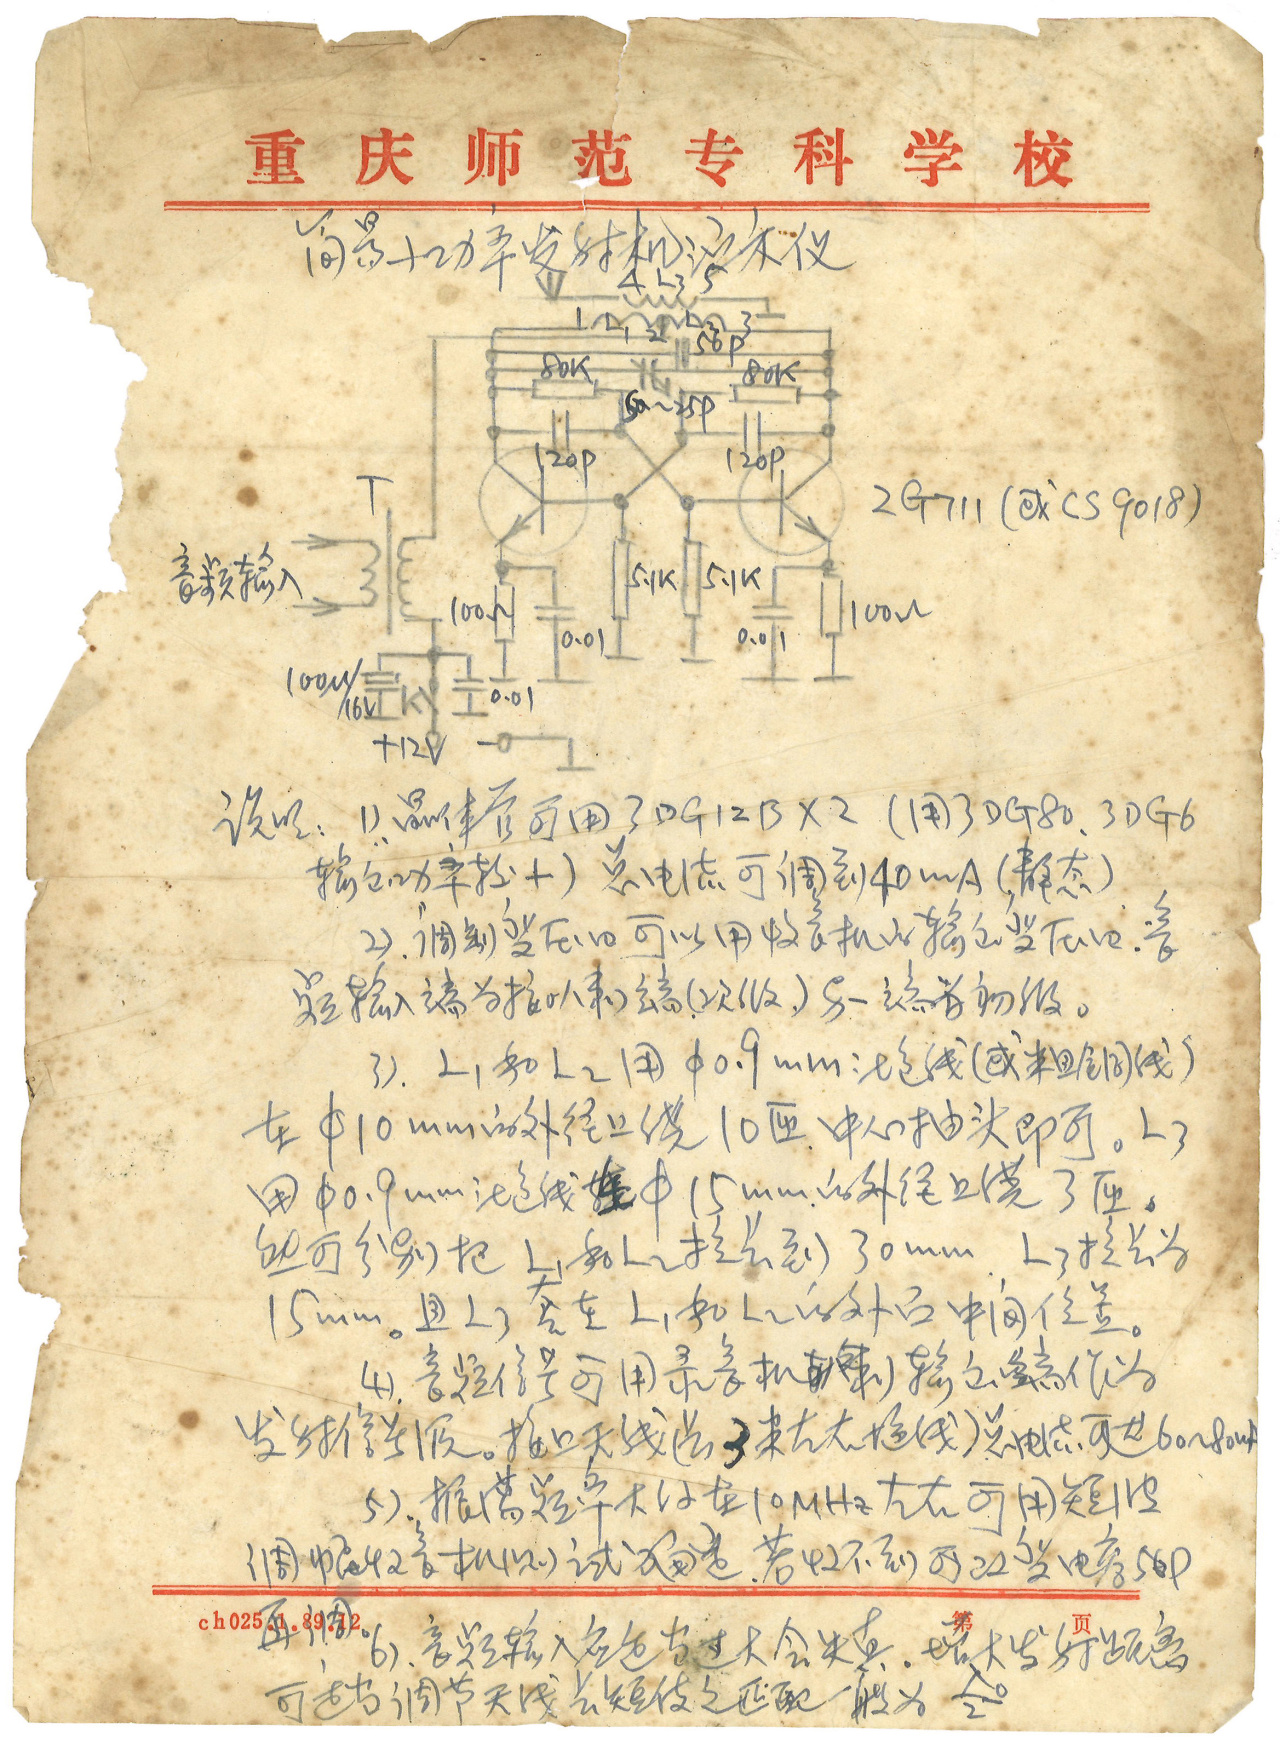 重庆师范专科学校
简易小功率发射机演示仪
4 L3 5
1 L1 2 L2 3
56P
80K
80K
5~25P
120P
120P
T
2G711(或CS9018)
音频输入
100Ω
0.01
5.1K
5.1K
0.01
100Ω
100μ/16V
K
0.01
+12V -
说明: 1).晶体管可用3DG12B×2 (用3DG80、3DG6
输出功率较小) 总电流可调到40mA(静态)
2).调制变压器可以用收音机的输出变压器.音
频输入端为接喇叭端(次级)另一端为初级。
3). L1和L2用φ0.9mm漆包线(或粗铜线)
在φ10mm的外径上绕10匝.中心抽头即可。L3
用φ0.9mm漆包线在φ15mm的外径上绕3匝。
也可分别把L1和L2拉长到30mm. L3拉长为
15mm。且L3套在L1和L2的外面中间位置。
4).音频信号可用录音机喇叭输出端作为
发射信号源。接上天线(长3米左右拖线)总电流可达60~80mA
5).振荡频率大约在10MHz左右可用短波
调幅收音机测试频率.若收不到可改变电容56P
再调。
ch025.1.89.12 第 页
6).音频输入应适当过大会失真。增大发射距离
可适当调节天线长短使之匹配一般为